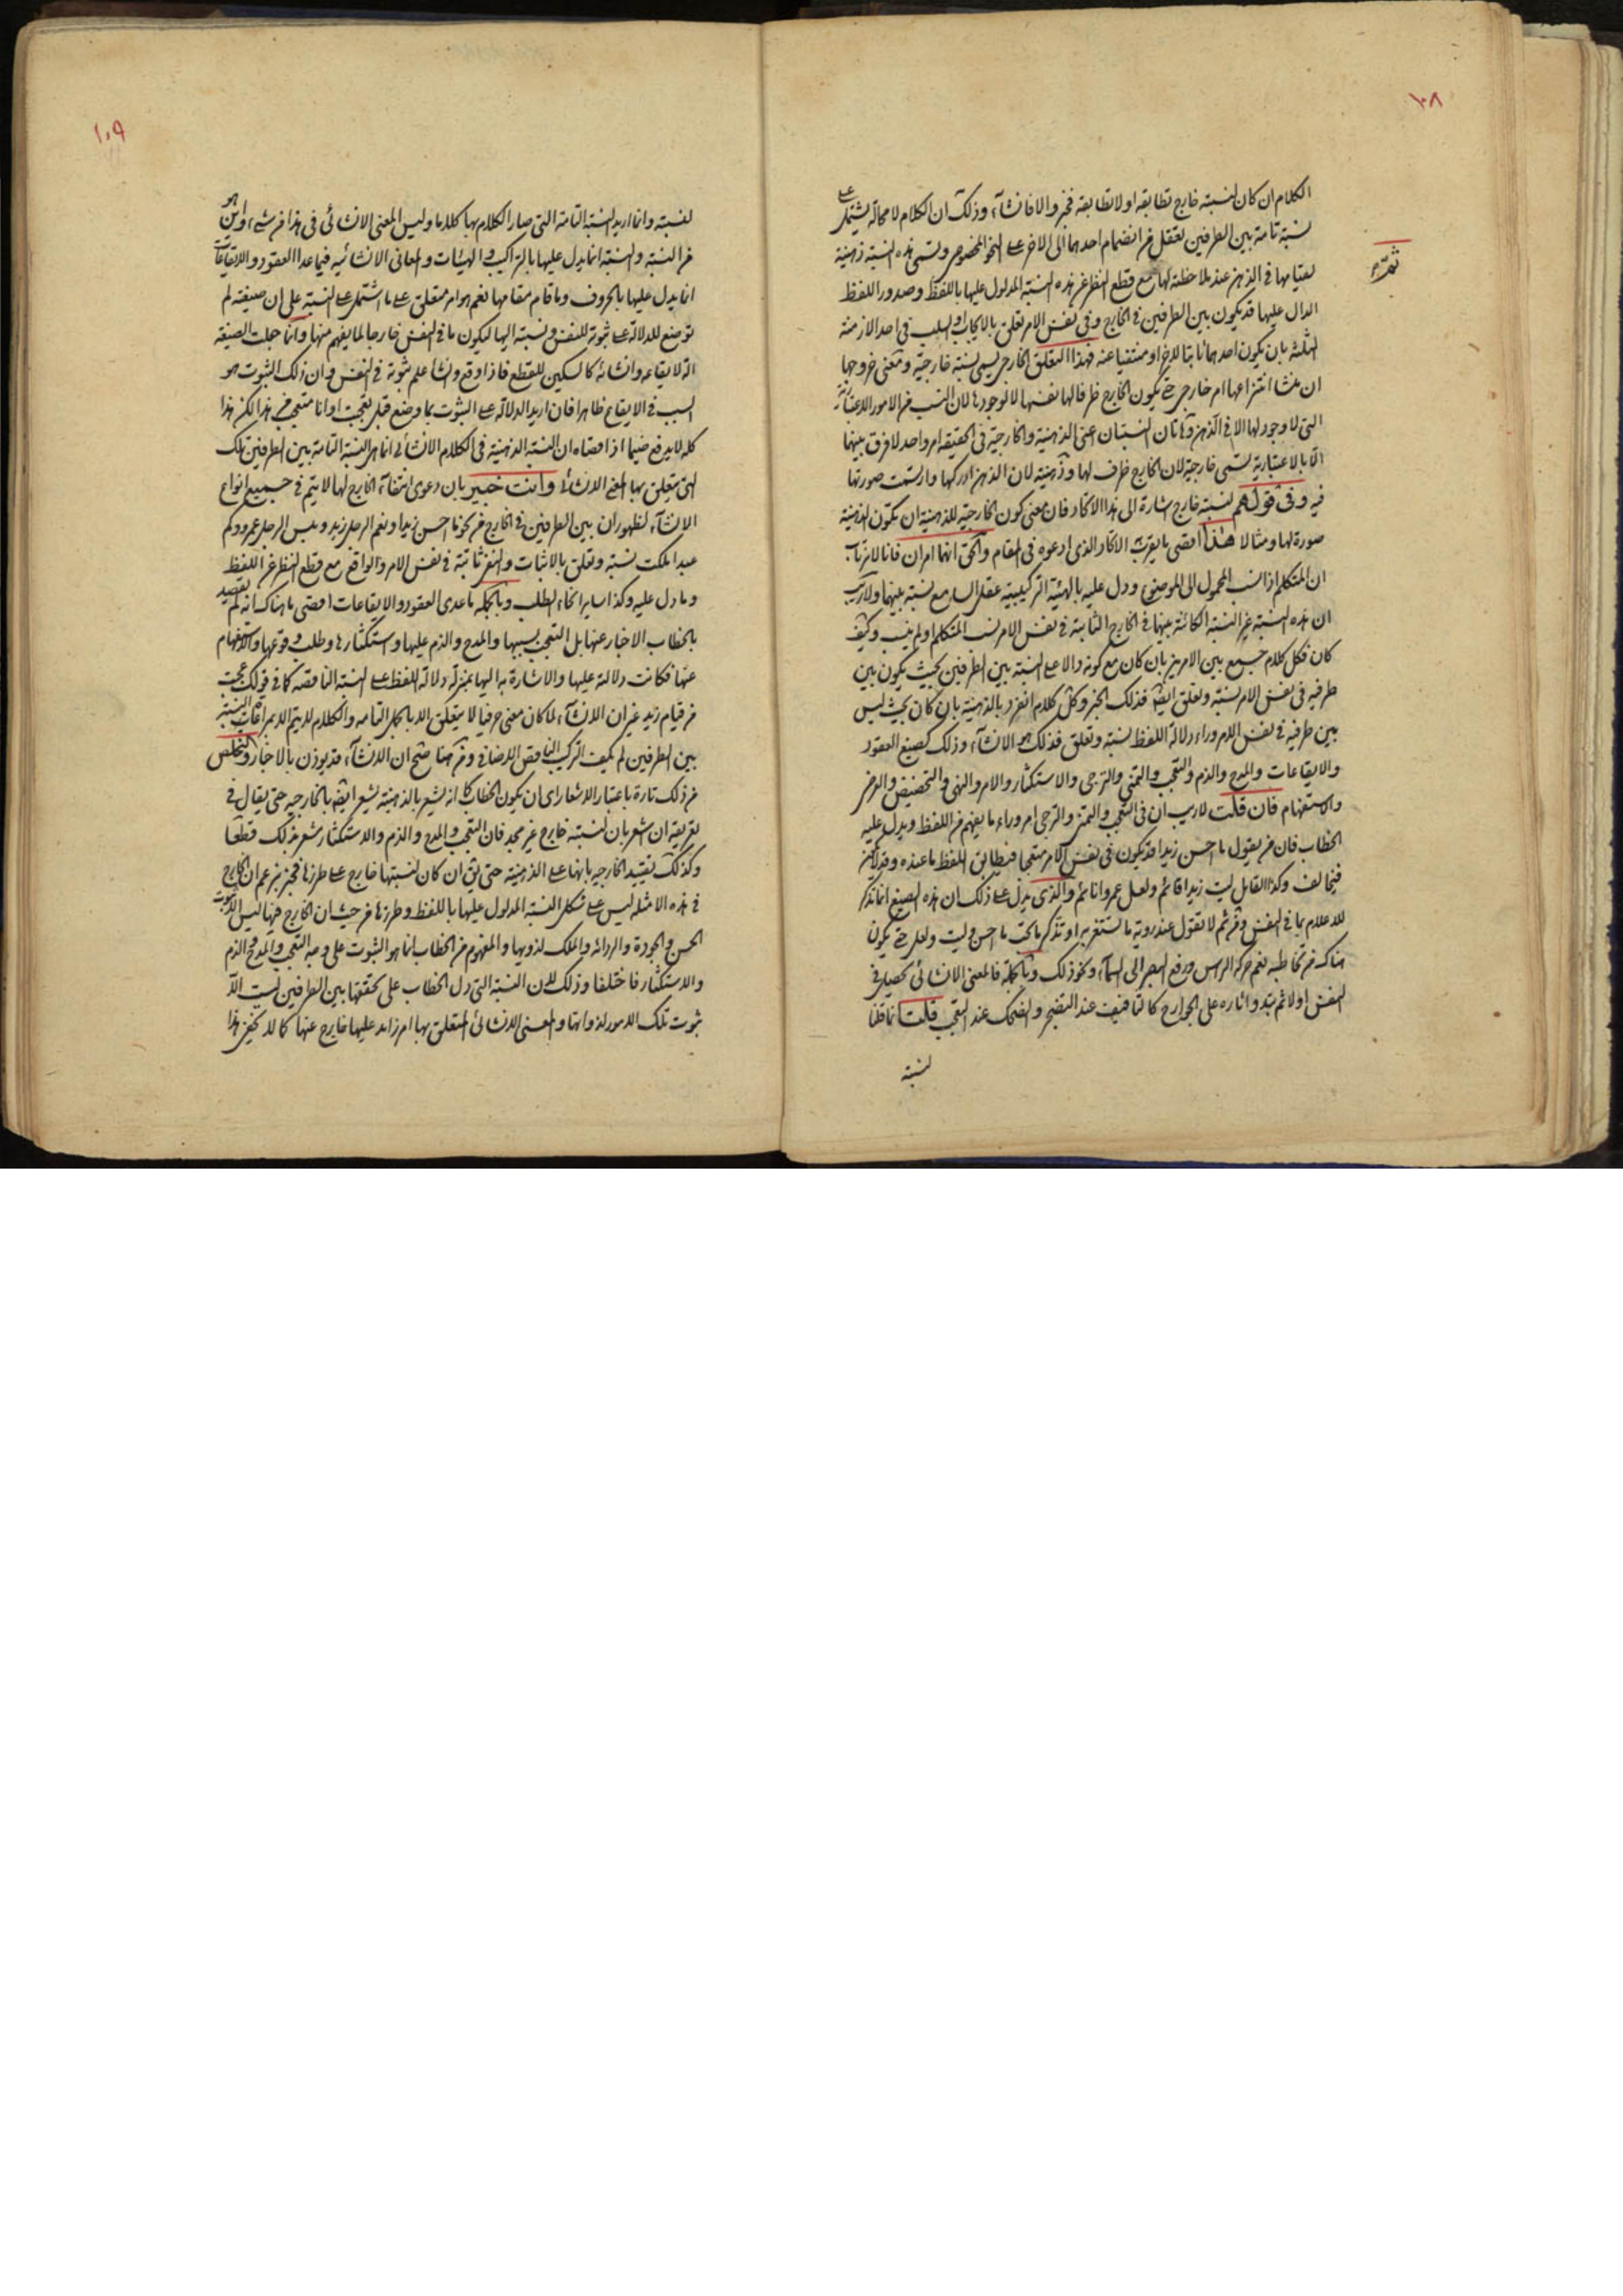 ١٠٨
الكلام ان كان لنسبته خارج تطابقه او لا تطابقه فخبر والا فانشاء وذلك ان الكلام لا محالة يشتمل على
نسبة تامة بين الطرفين تعقل من انضمام احدهما الى الاخر على النحو المخصوص وتسمى هذه النسبة ذهنية
ثمرة
لقيامها في الذهن عند ملاحظته لها ومع قطع النظر عن هذه النسبة المدلول عليها باللفظ وصدور اللفظ
الدال عليها قد يكون بين الطرفين في الخارج وفي نفس الامر تعلق بالايجاب والسلب في احد الازمنة
الثلثة بان يكون احدهما ثابتا للاخر او منتفيا عنه فهذا التعلق الخارجي يسمى نسبة خارجية ومعنى خروجها
ان منشا انتزاعها امر خارجي حتى يكون الخارج ظرفا لها نفسها لا لوجودها لان النسب من الامور الاعتبارية
التي لا وجود لها الا في الذهن وهاتان النسبتان اعني الذهنية والخارجية في الحقيقة امر واحد لا فرق بينهما
الا بالاعتبارية يسمى خارجية لان الخارج ظرف لها وذهنية لان الذهن ادركها وارتسمت صورتها
فيه وفي قولهم لنسبته خارج اشارة الى هذا الاتحاد فان معنى كون الخارجية للذهنية ان تكون الذهنية
صورة لها ومثالا هذا اقصى ما يقرب الاتحاد الذي ادعوه في المقام والحق انهما امران فانا لا نرتاب
ان المتكلم اذا نسب المحمول الى الموضوع ودل عليه بالهيئة التركيبية عقل السامع نسبة بينهما ولا ريب
ان هذه النسبة غير النسبة الكائنة بينهما في الخارج الثابتة في نفس الامر نسب المتكلم او لم ينسب وكيف
كان فكل كلام جمع بين الامرين بان كان مع كونه دالا على النسبة بين الطرفين بحيث يكون بين
طرفيه في نفس الامر نسبة وتعلق ايضا فذلك الخبر وكل كلام انفرد بالذهنية بان كان بحيث ليس
بين طرفيه في نفس الامر وراء دلالة اللفظ نسبة وتعلق فذلك هو الانشاء وذلك كصيغ العقود
والايقاعات والمدح والذم والتعجب والتمني والترجي والاستكثار والامر والنهي والتحضيض والعرض
والاستفهام فان قلت لا ريب ان في التعجب والتمني والترجي امر وراء ما يفهم من اللفظ ويدل عليه
الخطاب فان من يقول ما احسن زيدا قد يكون في نفس الامر متعجبا فيطابق اللفظ ما عنده وقد لا يكون
فيخالف وكذا القايل ليت زيدا قائم ولعل عمروا نائم والذي يدل على ذلك ان هذه الصيغ انما تذكر
للاعلام بما في النفس ومن ثم لا تقول عند روية ما تستغربه او تذكر ما تحب ما احسن وليت ولعل حتى يكون
هناك من تخاطبه نعم حركة الراس ورفع البصر الى السماء ونحو ذلك وبالجملة فالمعنى الانشائي يحصل في
النفس اولا ثم تبدو اثاره على الجوارح كالتافيف عند التضجر والضحك عند التعجب قلت انما قلنا
لنسبته
١٠٩
لنسبته وانما اريد النسبة التامة التي صار الكلام بها كلاما وليس المعنى الانشائي في هذا من شيء واين هو
من النسبة والنسبة انما يدل عليها بالتراكيب والهيئات والمعاني الانشائيه فيما عدا العقود والايقاعات
انما يدل عليها بالحروف وما قام مقامها نعم هو امر متعلق على ما اشتمل على النسبة على ان صيغته لم
توضع للدلالة على ثبوته للنفس ونسبته اليها ليكون ما في النفس خارجا لما يفهم منها وانما جعلت الصيغة
الة لايقاعه وانشائه كالسكين للقطع فاذا وقع وانشا علم ثبوته في النفس وان ذلك الثبوت هو
السبب في الايقاع ظاهرا فان اريد الدلالة على الثبوت بما وضع قيل تعجبت او انا متعجب من هذا لكن هذا
كله لا يدفع ضيما اذ اقصاه ان النسبة الذهنية في الكلام الانشائي انما هي النسبة التامة بين الطرفين تلك
التي يتعلق بها المعنى الانشائي وانت خبير بان دعوى انتفاء الخارج لها لا يتم في جميع انواع
الانشاء لظهور ان بين الطرفين في الخارج من نحو ما احسن زيدا ونعم الرجل زيد وبئس الرجل عمرو وكم
عبد املكت نسبة وتعلق بالاثبات والنفي ثابتة في نفس الامر والواقع مع قطع النظر عن اللفظ
وما دل عليه وكذا ساير انحاء الطلب وبالجملة ما عدى العقود والايقاعات اقصى ما هناك انه لم يقصد
بالخطاب الاخبار عنها بل التعجب بسببها والمدح والذم عليها واستكثارها وطلب وقوعها والاستفهام
عنها فكانت دلالته عليها والاشارة به اليها بمنزلة دلالة اللفظ على النسبة الناقصة كما في قولك عجبت
من قيام زيد غير ان الانشاء لما كان معنى حرفيا لا يتعلق الا بالجمل التامه والكلام لا يتم الا بمراعات النسبة
بين الطرفين لم يكف التركيب الناقص الاضافي ومن هنا صح ان الانشاء قد يوذن بالاخبار والتخلص
من ذلك تارة باعتبار الاشعار اي ان يكون الخطاب كما انه يشعر بالذهنية يشعر ايضا بالخارجيه حتى يقال في
تعريفه ان شعر بان لنسبته خارج غير مجد فان التعجب والمدح والذم والاستكثار مشعر بذلك قطعا
وكذلك تقييد الخارجيه بانها على الذهنية حتى يق ان كان لنسبتها خارج على طرزها فخبر بزعم ان الخارج
في هذه الامثلة ليس على شكل النسبة المدلول عليها باللفظ وطرزها من حيث ان الخارج فيها ليس الا ثبوت
الحسن والجودة والرداءة والملك لذويها والمفهوم من الخطاب انما هو الثبوت على وجه التعجب والمدح والذم
والاستكثار فاختلفا وذلك لان النسبة التي دل الخطاب على تحققها بين الطرفين ليست الا
ثبوت تلك الامور لذواتها والمعنى الانشائي المتعلق بها امر زايد عليها خارج عنها كما لا يخفى هذا